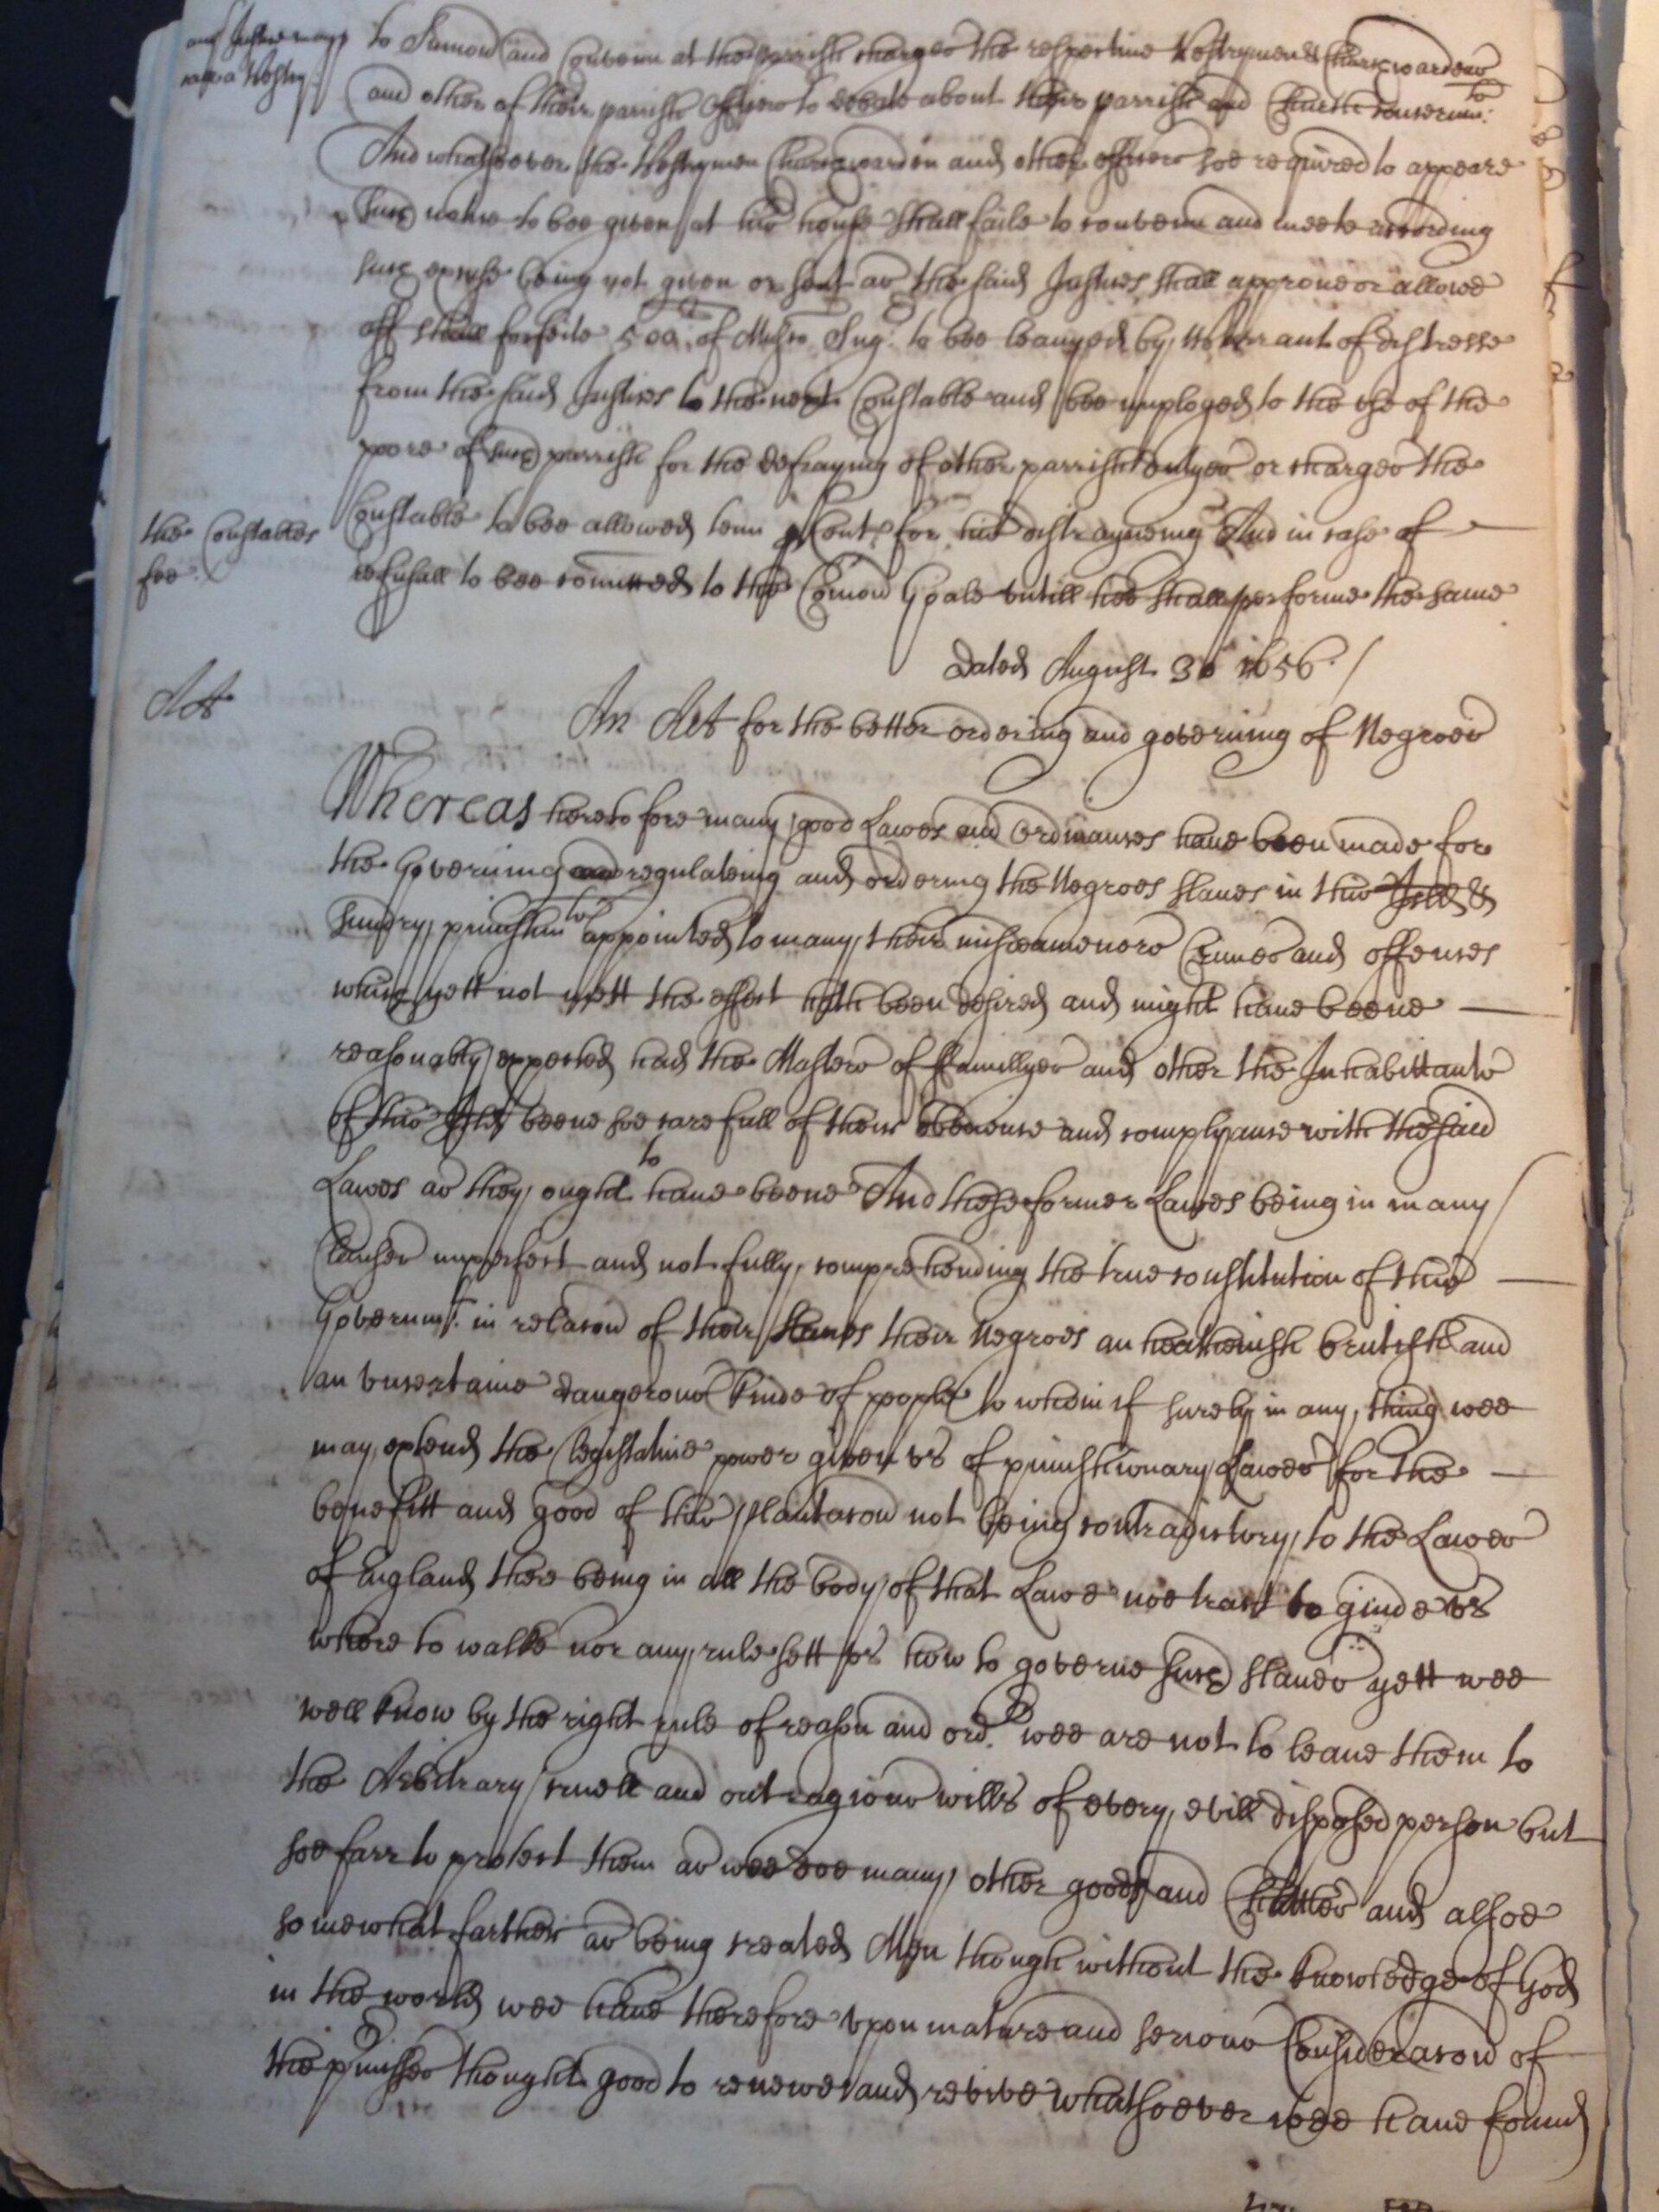 any Justice may
call a Vestry
to Sumon and Conveen at the parrish charges the respective Vestrymen & Churchwardens
and other of their parrish Officers to debate about their parrish and Church Concernmts:
And whatsoever the Vestrymen Churchwarden and other officers soe required to appeare
Such notice to bee given at his house Shall faile to conveen and meete according
such excuse being not given or sent as the said Justices shall approve or allowe
off shall forfeite 500l: of Musco Sug: to bee leauyed by Warrant of distresse
from the said Justices to the next Constable and bee imployed to the vse of the
poore of such parrish for the defraying of other parrish dutyes or charges the
the Constables
fee.
Constable to bee allowed tenn p Cent: for his distrayneing And in case of
refusall to bee comitted to the Comon Goale vntill hee shall performe the same
Dated August 30 1656
Act
An Act for the better ordering and governing of Negroes
Whereas heretofore many good Lawes and Ordinances haue been made for
the Governing and regulateing and ordering the Negroes slaues in this Isld &
Sundry punishmts appointed to many their misdeamenors Crimes and offences
which yett not mett the effect hath been desired and might haue beene
reasonably expected had the Masters of ffamillyes and other the Inhabittants
of this Isld beene soe carefull of their obedience and complyance with the said
Lawes as they ought to haue beene And these former Lawes being in many
Clauses imperfect and not fully comprehending the true constitution of this
Governmt: in relacon of their slaues their Negroes an heathenish brutish and
an vncertaine dangerous kinde of people to whom if surely in any thing wee
may extend the legislatiue power given vs of punishionary Lawes for the
benefitt and good of this plantacon not being contradictory to the Lawes
of England there being in all the body of that Lawe noe tract to guide vs
where to walke nor any rule sett vs how to governe such slaues yett wee
well know by the right rule of reason and ord: wee are not to leaue them to
the Arbitrary cruell and outragious wills of every evill disposed person but
soe farr to protect them as wee doe many other goods and Chatles and alsoe
somewhat farther as being created Men though without the knowledge of God
in the world wee haue therefore vpon mature and serious Consideracon of
the pmisses thought good to renewe and revive whatsoever wee haue found